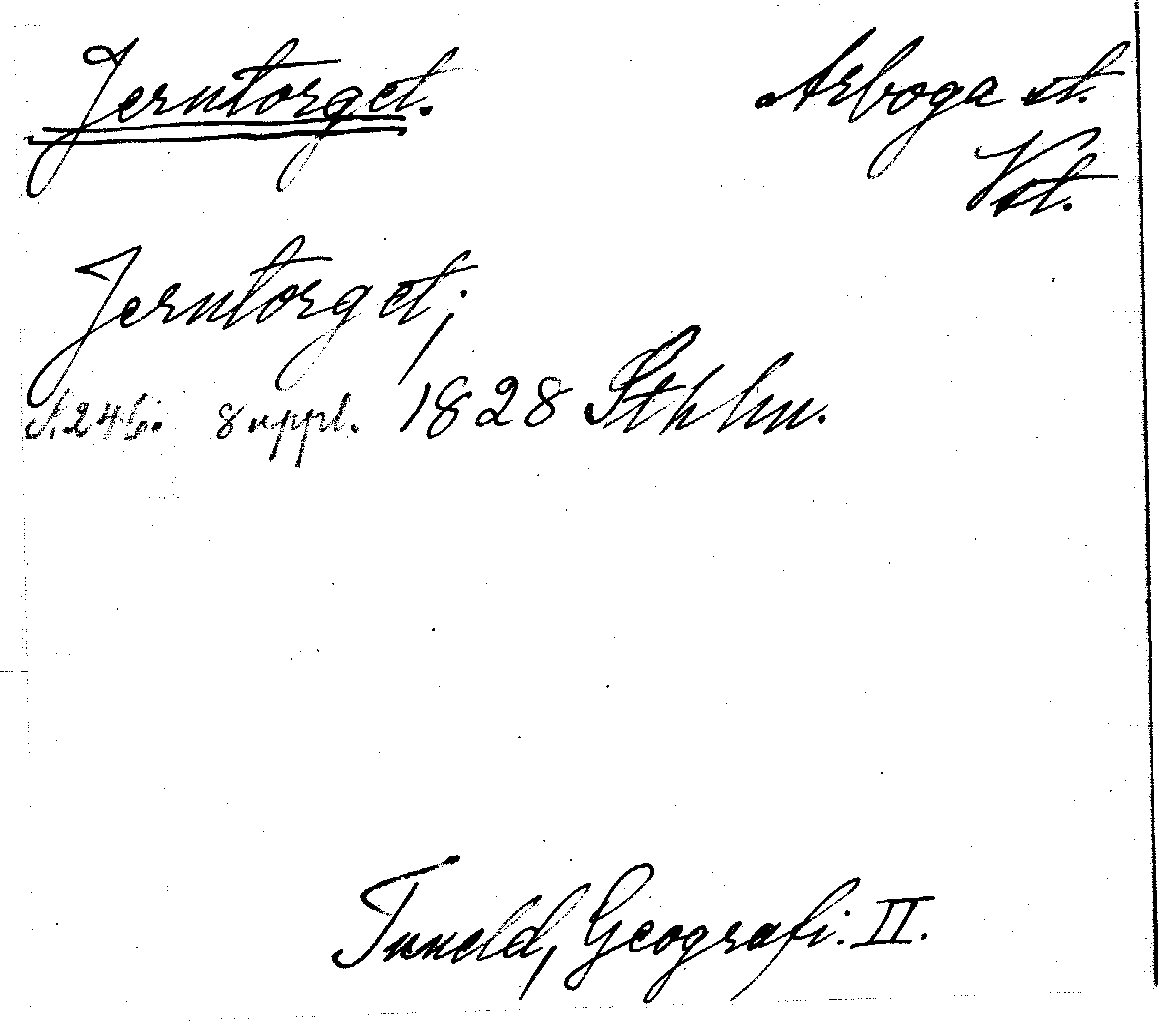 Jerntorget. Arboga st.
Vst.
Jerntorget;
S. 246. 8 uppl. 1828 Sthlm.
Tuneld, Geografi. II.